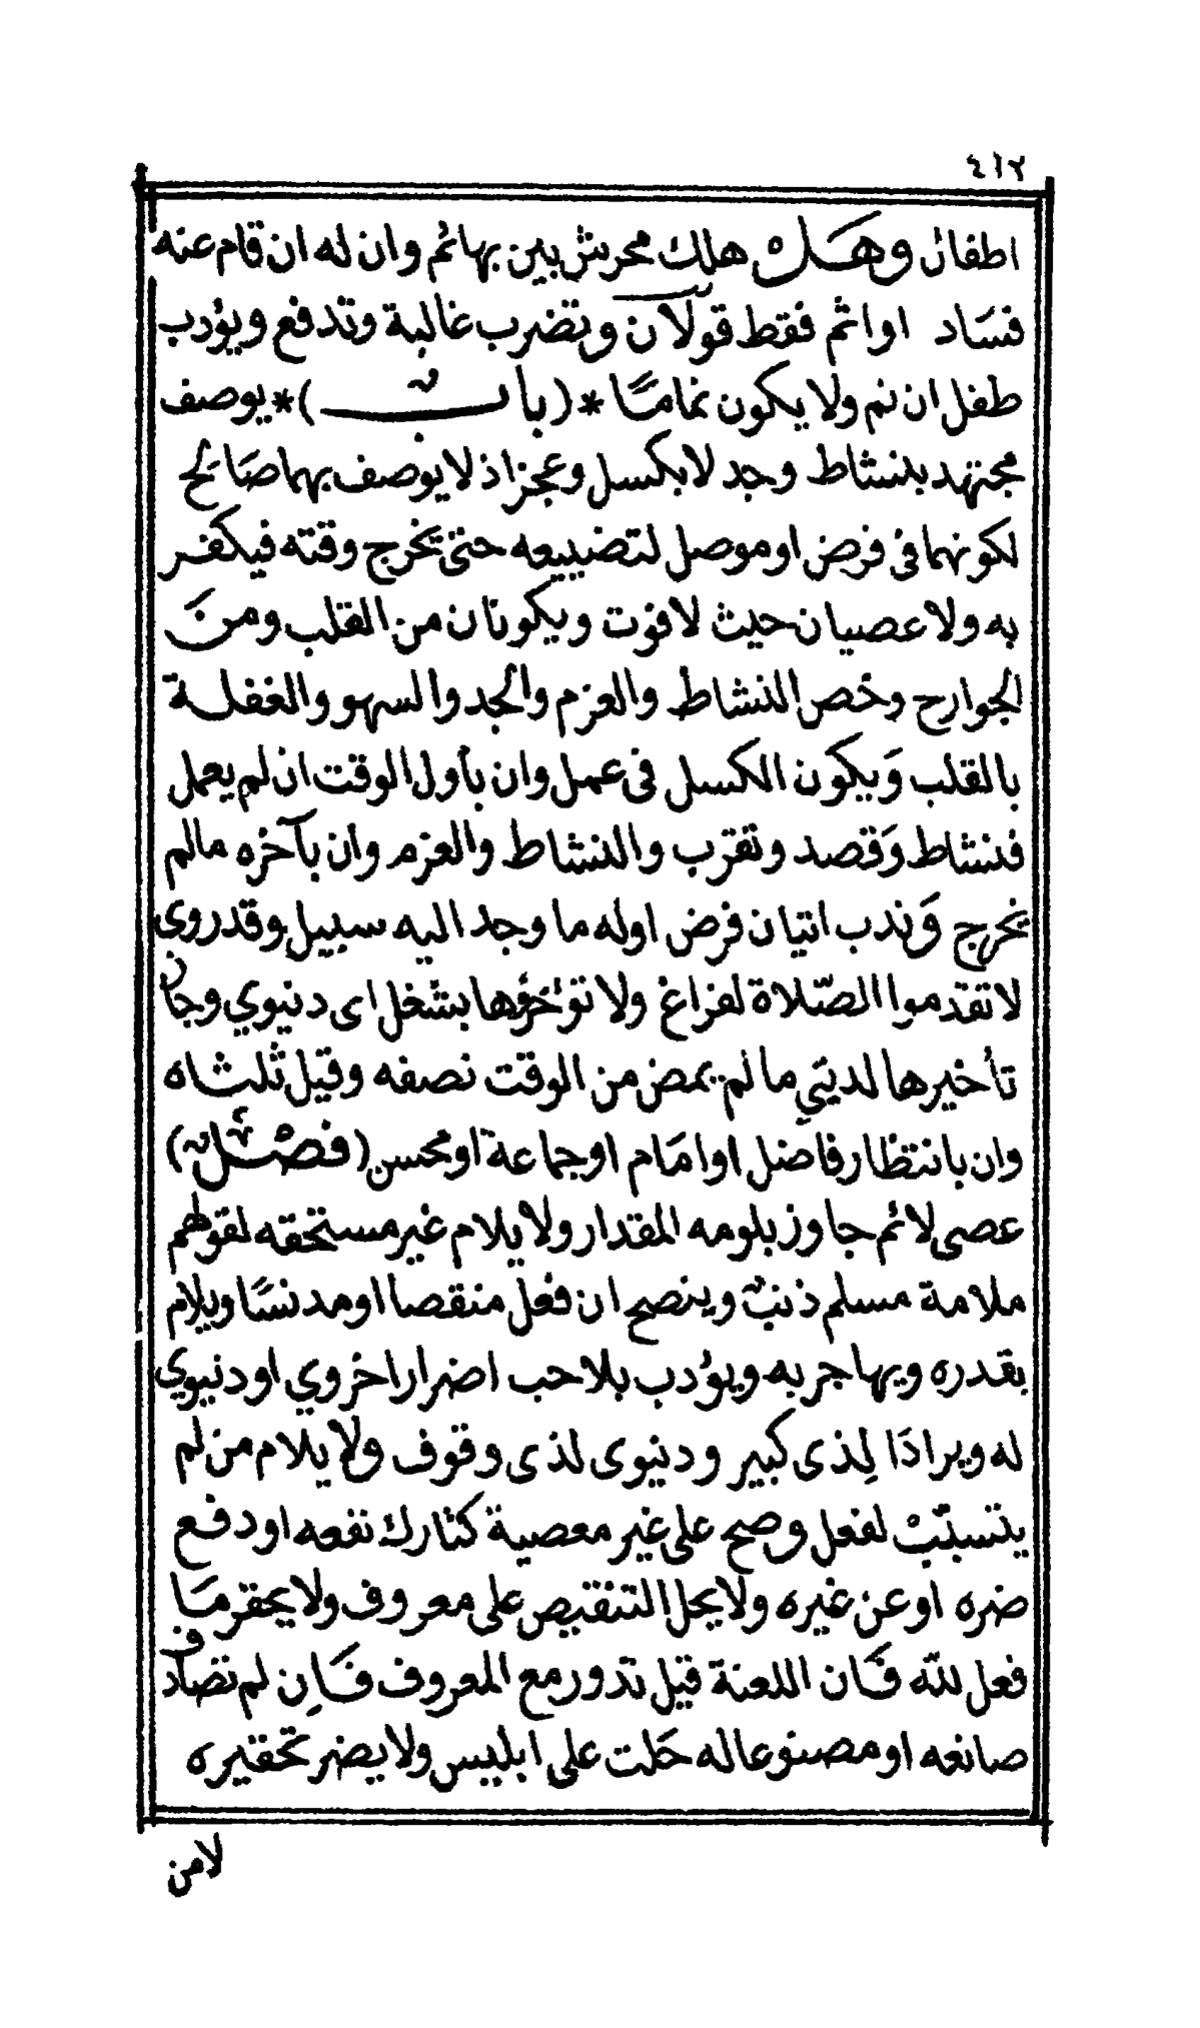 ٤١٢
اطفائ وهَل هلك محرش بين بهائم وان له ان قام عنه
فسَاد اواثم فقط قولان وتضرب غالبة وتدفع ويؤدب
طفل ان نم ولا يكون نمامًا *(بابٌ)* يوصف
مجتهد بنشاط وجد لا بكسل وعجز اذ لا يوصف بهما صَالح
لكونهما فى فرض او موصل لتضييعه حتى يخرج وقته فيكفر
به ولا عصيان حيث لا فوت ويكونان من القلب ومنَ
الجوارح وخص النشاط والعزم والجد والسهو والغفلة
بالقلب وَيكون الكسل فى عمل وان بأول الوقت ان لم يعمل
فنشاط وَقصد وتقرب والنشاط والعزم وان بآخره مالم
يخرج وَندب اتيان فرض اوله ما وجد اليه سبيل وقدروى
لا تقدموا الصّلاة لفراغ ولا تؤخروها بشغل اى دنيوي وجاز
تأخيرها لدينيّ ما لم يمض من الوقت نصفه وقيل ثلثاه
وان بانتظار فاضل او امَام او جماعة او محسن (فصْلٌ)
عصى لائم جاوز بلومه المقدار ولا يلام غير مستحقه لقولهم
ملامة مسلم ذنبٌ وينصح ان فعل منقصا او مدنسًا ويلام
بقدره ويهاجر به ويؤدب بلا حب اضرار اخروي او دنيوي
له ويراد الِذى كبير ودنيوى لذى وقوف ولا يلام من لم
يتسبّبْ لفعل وصح على غير معصية كتارك نفعه او دفع
ضره او عن غيره ولا يحل التنقيص على معروف ولا يحقر مَا
فعل للّه فَان اللعنة قيل تدور مع المعروف فَاِن لم تصادف
صانعه او مصنوعا له حَلت على ابليس ولا يضر تحقيره
لامن